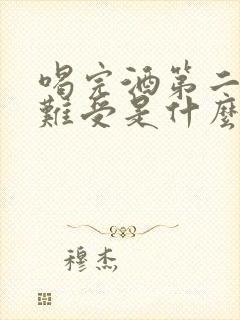 喝完酒第二
難受是什麼
穆杰